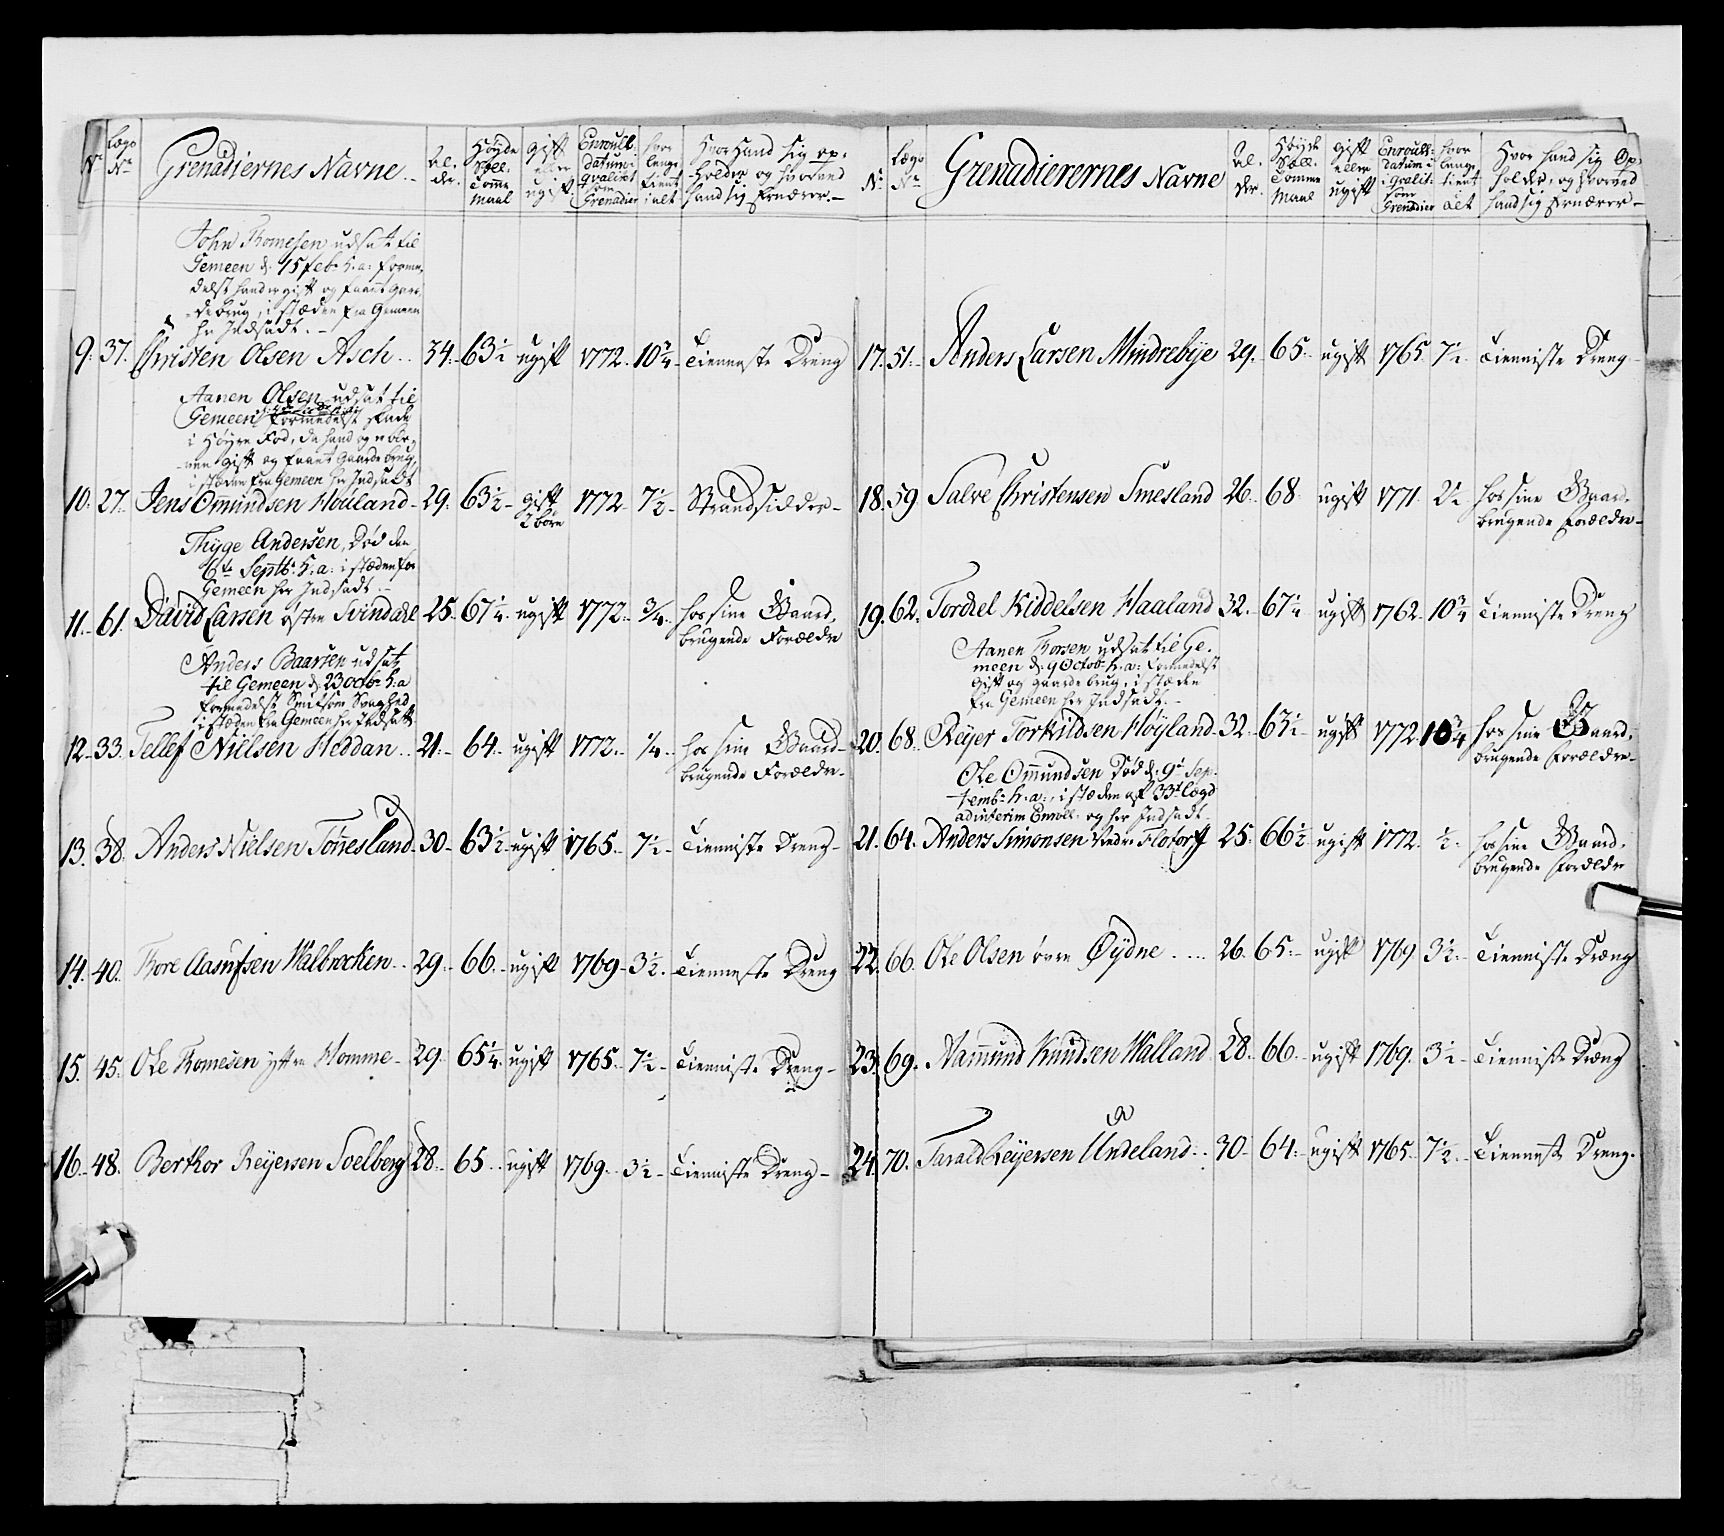 No
Lægs No
Grenadiernes Navne
Al-
der.
Höyde
Säll:
Tomme
Maal
gift
eller
ugift
Enroull:
datum i
qvalitet
som
Grenadier
hvor
lange
tient
i alt
Hvor Hand sig op-
holder og hvorved
hand sig ernærer.
John Thomesen udsat til
Gemeen d. 15 feb: h: a: forme-
delst hand er gift og faaet gaar-
de brug, i stæden fra Gemeen
her Indsadt.
9. 37. Christen Olsen Asch 34. 63½ ugift 1772. 10¾ Tienneste Dreng
Aanen Olsen udsat til
Gemeen formedelst skade
i Höyre Fod, da hand og
gift og faaet Gaarde brug,
i stæden fra Gemeen her Indsadt
10. 27. Jens Omundsen Houland 29. 63½ gift 1772. 7½ Strandsidder
2 börn
Thyge Andersen, Död den
6te Septb: h: a: i stæden fra
Gemeen her Indsadt.
11. 61. David Larsen östre Svindahl 25. 67¼ ugift 1772. ¾ hos sine Gaard-
brugende Forældre
Anders Baarsen udsat
til Gemeen d: 23 octbr h: a
formedelst Svaghed
i stæden fra Gemeen her Indsatt
12. 33. Tellef Nielsen Heddan 21. 64. ugift 1772. ¼ hos sine Gaard-
brugende Forældre
13. 38. Anders Nielsen Tönnesland 30. 63½ ugift 1765. 7½ Tienniste Dreng
14. 40. Thore Aasufsen Walbrocken 29. 66. ugift 1769. 3½. Tienneste Dreng
15. 45. Ole Thomesen yttre Homme 29. 65¼. ugift 1765. 7½ Tienniste Dreng
16. 48. Berthor Reyersen Soelberg 28. 65. ugift 1769. 3½ Tienniste Dreng
No
Lægs No
Grenadierernes Navne
Al-
der.
Höyde
Säll:
Tomme
Maal
gift
eller
ugift
Enroull:
datum i
i qvalit:
som
Grenadier
hvor
lange
tient
alt
Hvor hand sig Op-
holder, og hvorved
hand sig ernærer
17. 51. Anders Larsen Mindrebye 29. 65. ugift 1765. 7½ Tienniste Dreng
18. 59. Salve Christensen Smesland 26. 68. ugift 1771. 2½ hos sine Gaard-
brugende Forældre
19. 62. Tordiel Kiddelsen Haaland 32. 67½ ugift 1762. 10¾ Tienniste Dreng
Aanen Thorsen udsat til Ge-
meen d: 9 Octob: h: a: formedelst
gift og gaarde brug, i stæden
fra Gemeen her Indsadt.
20. 68. Reyer Torkildsen Höyland 32. 63½ ugift 1772 10¾ hos sine Gaard-
brugende Forældre
Ole Omundsen Död d: 9de Sep-
tembr: h: a:, i stæden af 33te Lægd
ad interim Enroll: og her Indsadt
21. 64. Anders Simonsen Nedre Flotorp 25. 66½ ugift 1772. ½. hos sine Gaard-
brugende Forældre
22. 66. Ole Olsen övre Öydne 26. 65. ugift 1769 3½. Tienniste Dreng
23. 69. Namund Knudsen Walland 28. 66. ugift 1769. 3½ Tienniste Dreng
24. 70. Tarald Reyersen Undeland 30. 64. ugift 1765. 7½ Tienneste Dreng.